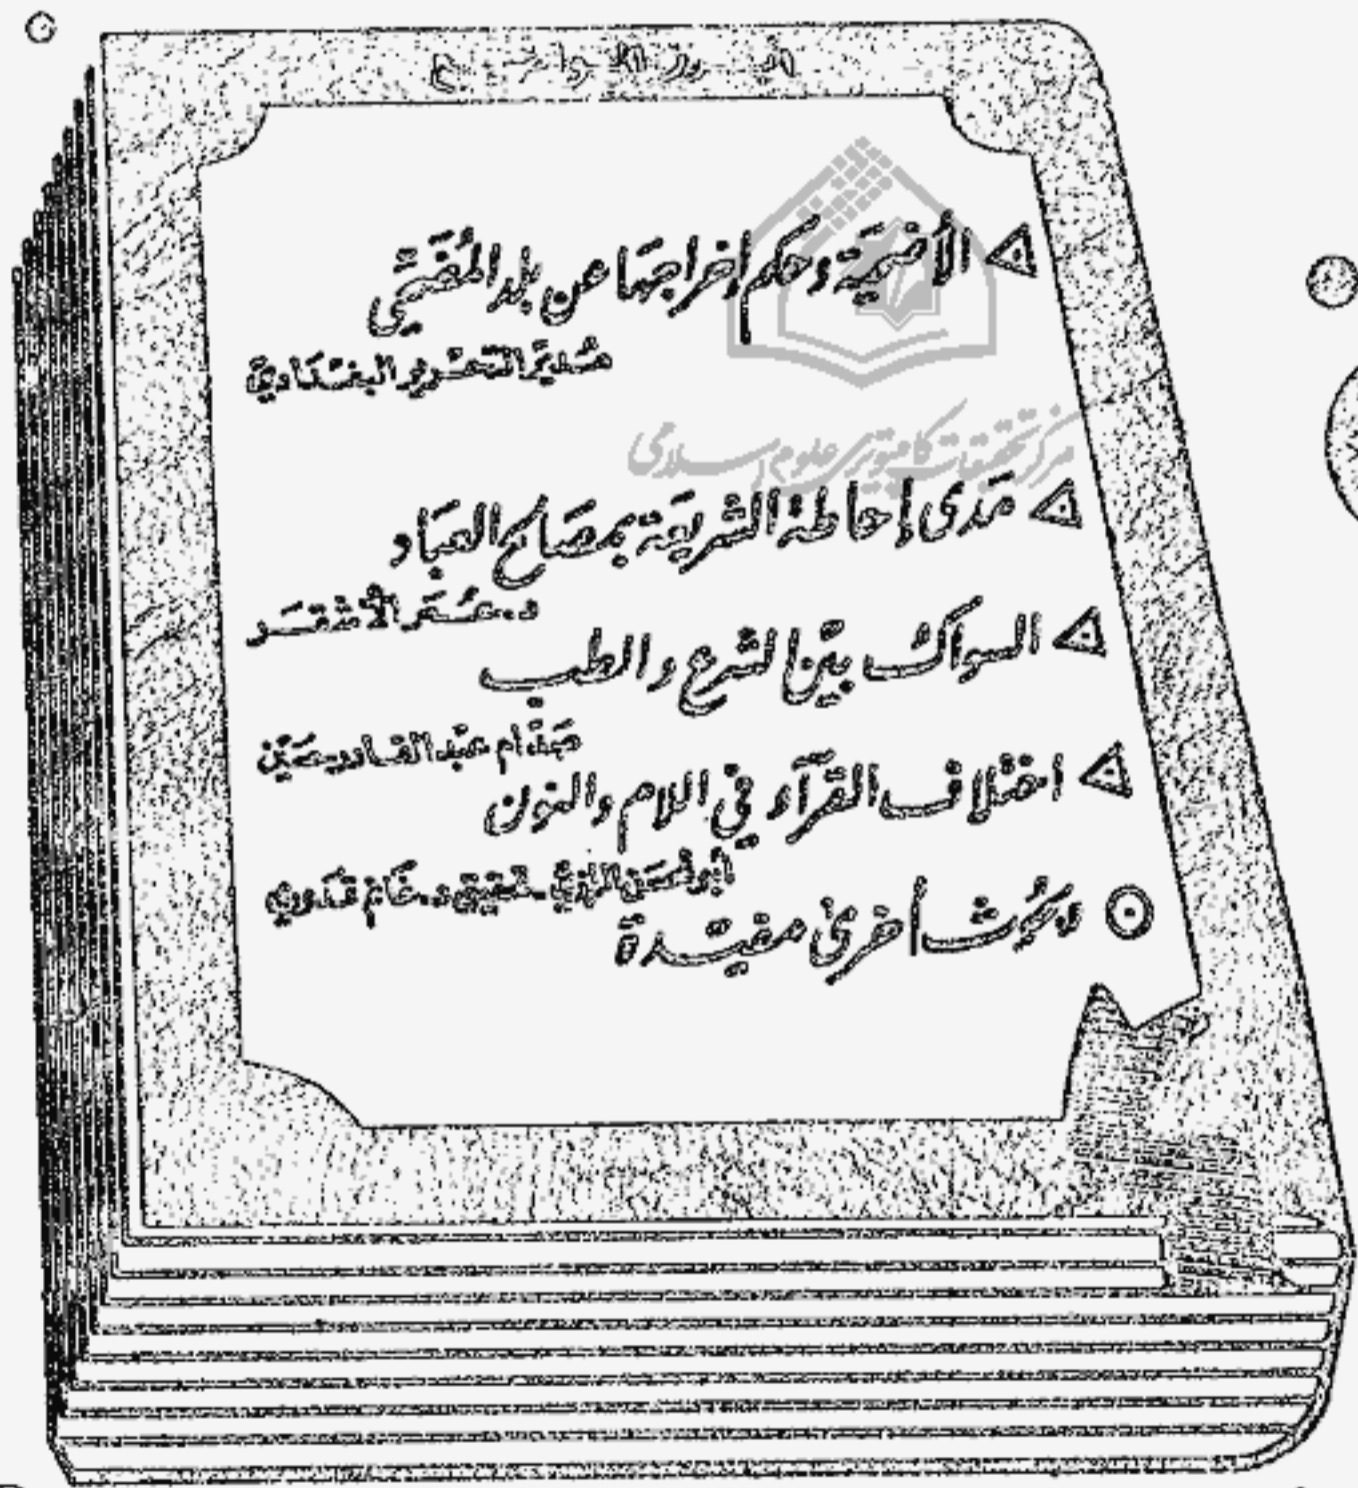 الأضحية وحكم إخراجها عن بلد المُضَحِّي
مدير التحرير البغدادي
مركز تحقيقات كامپيوتری علوم اسلامی
مَدَى إحاطة الشريعة بمصالح العباد
د. عمر الأشقر
السواك بين الشرع والطب
عبد القادر حسين
اختلاف القرآء في اللام والنون
أبو الحسن الرازي - تحقيق د. غانم قدوري
بحوث أخرى مفيدة